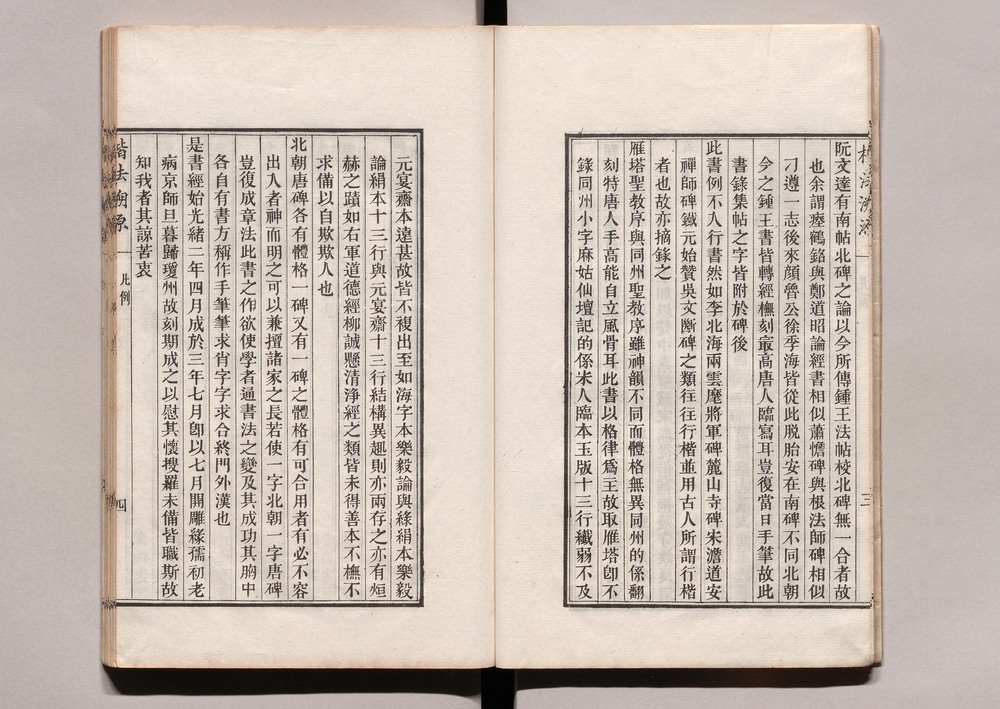 阮文達有南帖北碑之論以今所傳鍾王法帖校北碑無一合者故
也余謂瘞鶴銘與鄭道昭論經書相似蕭憺碑與根法師碑相似
刁遵一志後來顏魯公徐季海皆從此脫胎安在南碑不同北朝
今之鍾王書皆轉經橅刻最高唐人臨寫耳豈復當日手筆故此
書錄集帖之字皆附於碑後
此書例不入行書然如李北海兩雲麾將軍碑麓山寺碑宋澹道安
禪師碑鐵元始贊吳文斷碑之類往往行楷並用古人所謂行楷
者也故亦摘錄之
雁塔聖教序與同州聖教序雖神韻不同而體格無異同州的係翻
刻特唐人手高能自立風骨耳此書以格律爲主故取雁塔卽不
錄同州小字麻姑仙壇記的係米人臨本玉版十三行纖弱不及
元宴齋本遠甚故皆不複出至如海字本樂毅論與綠絹本樂毅
論絹本十三行與元宴齋十三行結構異趣則亦兩存之亦有烜
赫之蹟如右軍道德經柳誠懸清淨經之類皆未得善本不橅不
求備以自欺欺人也
北朝唐碑各有體格一碑又有一碑之體格有可合用者有必不容
出入者神而明之可以兼擅諸家之長若使一字北朝一字唐碑
豈復成章法此書之作欲使學者通書法之變及其成功其胸中
各自有書方稱作手筆筆求肖字字求合終門外漢也
是書經始光緒二年四月成於三年七月卽以七月開雕緣孺初老
病京師旦暮歸瓊州故刻期成之以慰其懷搜羅未備皆職斯故
知我者其諒苦衷
楷法溯原
凡例
四